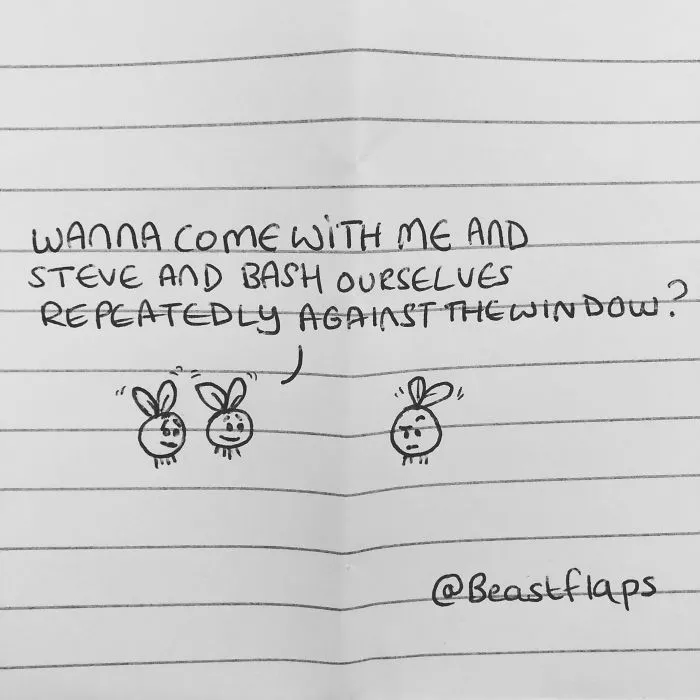 WANNA COME WITH ME AND
STEVE AND BASH OURSELVES
REPEATEDLY AGAINST THE WINDOW?
@Beastflaps